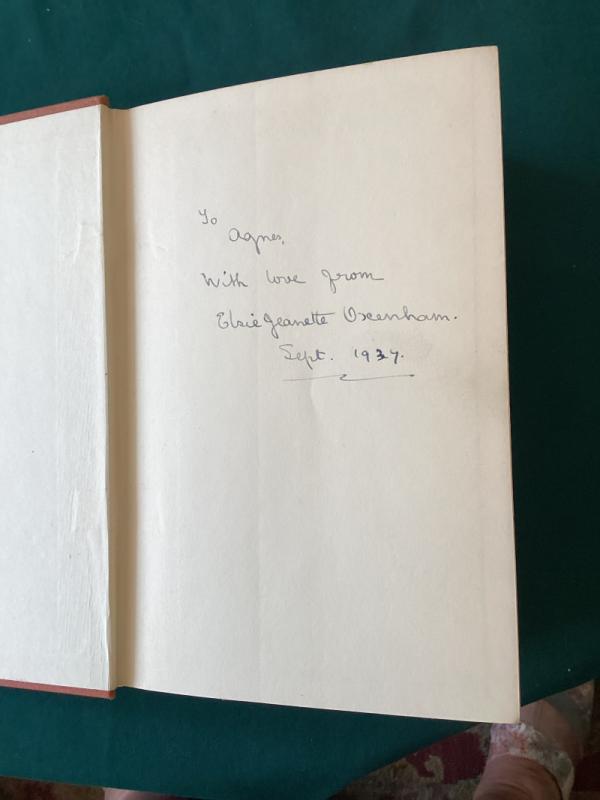 To
Agnes,
With love from
Elsie Jeanette Oxenham.
Sept. 1937.